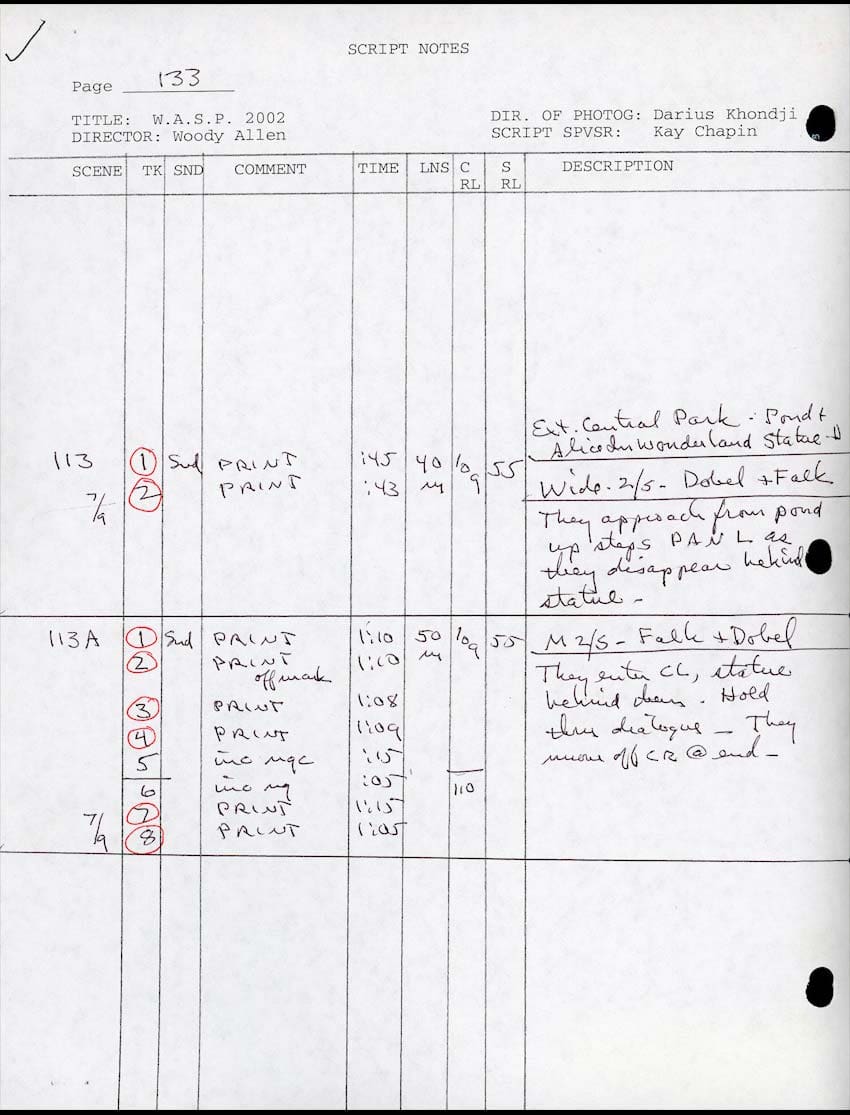 SCRIPT NOTES
Page 133
TITLE: W.A.S.P. 2002
DIR. OF PHOTOG: Darius Khondji
DIRECTOR: Woody Allen
SCRIPT SPVSR: Kay Chapin
SCENE TK SND COMMENT TIME LNS C RL S RL DESCRIPTION
Ext. Central Park - Pond +
Alice In Wonderland Statue - D
113 1 Snd PRINT :45 40 109 55
7/9 2 PRINT :43 m
Wide - 2/S - Dobel + Falk
They approach from pond
up steps PAN L as
they disappear behind
statue -
113A 1 Snd PRINT 1:10 50 109 55 M 2/S - Falk + Dobel
2 PRINT 1:10 m
off mark
3 PRINT 1:08
4 PRINT 1:09
5 inc ngc :15
6 inc ng :05 110
7/9 7 PRINT 1:15
8 PRINT 1:05
They enter CL, statue
behind them. Hold
thru dialogue - They
move off CR @ end -